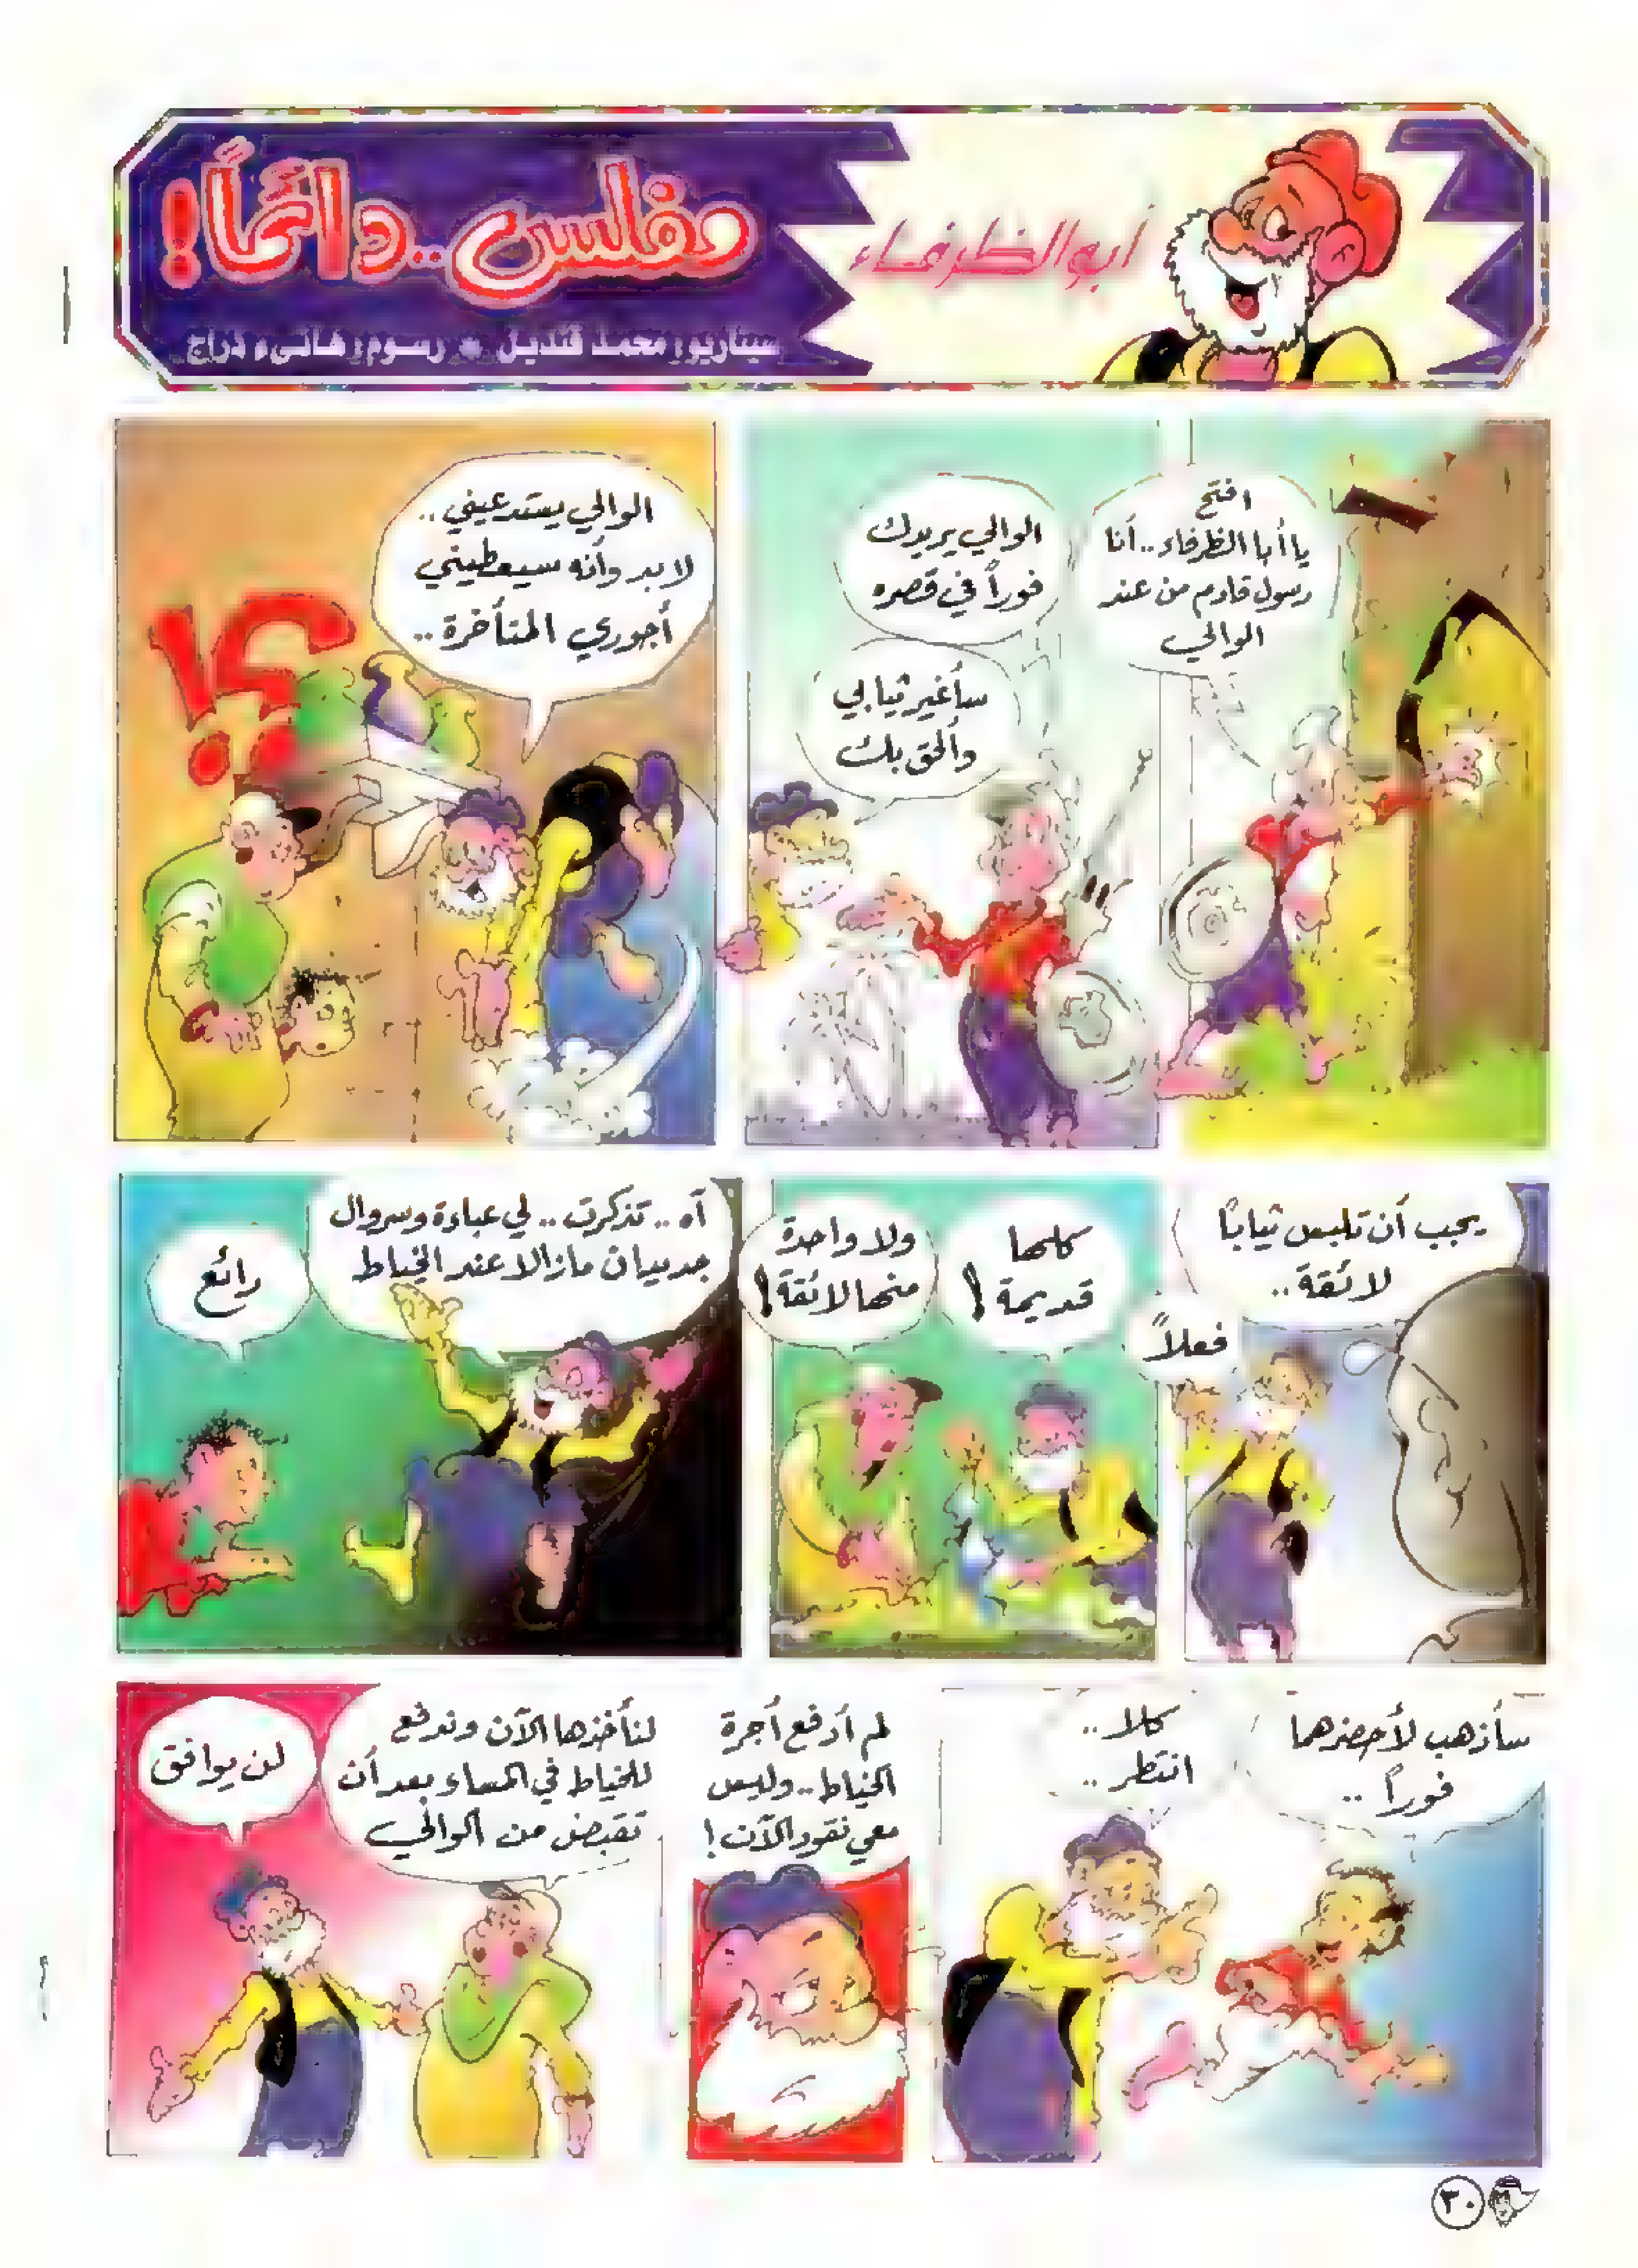 أبو الظرفاء
مفلس.. دائماً!
سيناريو: محمد قنديل * رسوم: هانىء دراج
افتح
يا أبا الظرفاء.. أنا
رسول قادم من عند
الوالي
الوالي يريدك
فوراً في قصره
سأغير ثيابي
وألحق بك
الوالي يستدعيني..
لا بد وأنه سيعطيني
أجوري المتأخرة..
؟!
يجب أن تلبس ثياباً
لائقة..
فعلاً
كلها
قديمة!
ولا واحدة
منها لائقة!
آه.. تذكرت.. لي عباءة وسروال
جديدان مازالا عند الخياط
رائع
سأذهب لأحضرهما
فوراً..
كلا..
انتظر..
لم أدفع أجرة
الخياط.. وليس
معي نقود الآن!
لنأخذها الآن وندفع
للخياط في المساء بعد أن
تقبض من الوالي
لن يوافق
٣٠